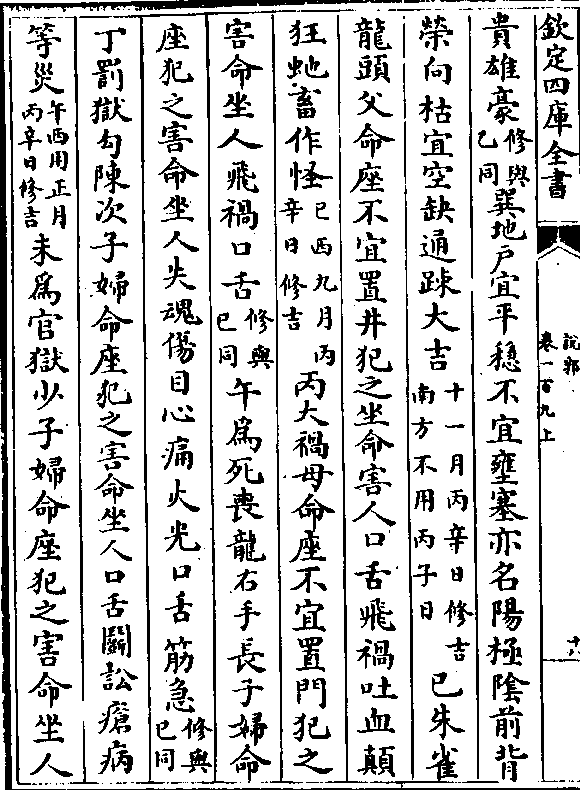 欽定四庫全書
說郛
卷一百九上
十八
貴雄豪修與乙同巽地戶宜平穩不宜壅塞亦名陽極陰前背
榮向枯宜空缺通踈大吉十一月丙辛日修吉南方不用丙子日巳朱雀
龍頭父命座不宜置井犯之坐命害人口舌飛禍吐血顛
狂虵畜作怪巳酉九月丙辛日修吉丙大禍母命座不宜置門犯之
害命坐人飛禍口舌修與巳同午為死喪龍右手長子婦命
座犯之害命坐人失魂傷目心痛火光口舌筋急修與巳同
丁罰獄勾陳次子婦命座犯之害命坐人口舌鬬訟瘡病
等災午酉用正月丙辛日修吉未為官獄少子婦命座犯之害命坐人